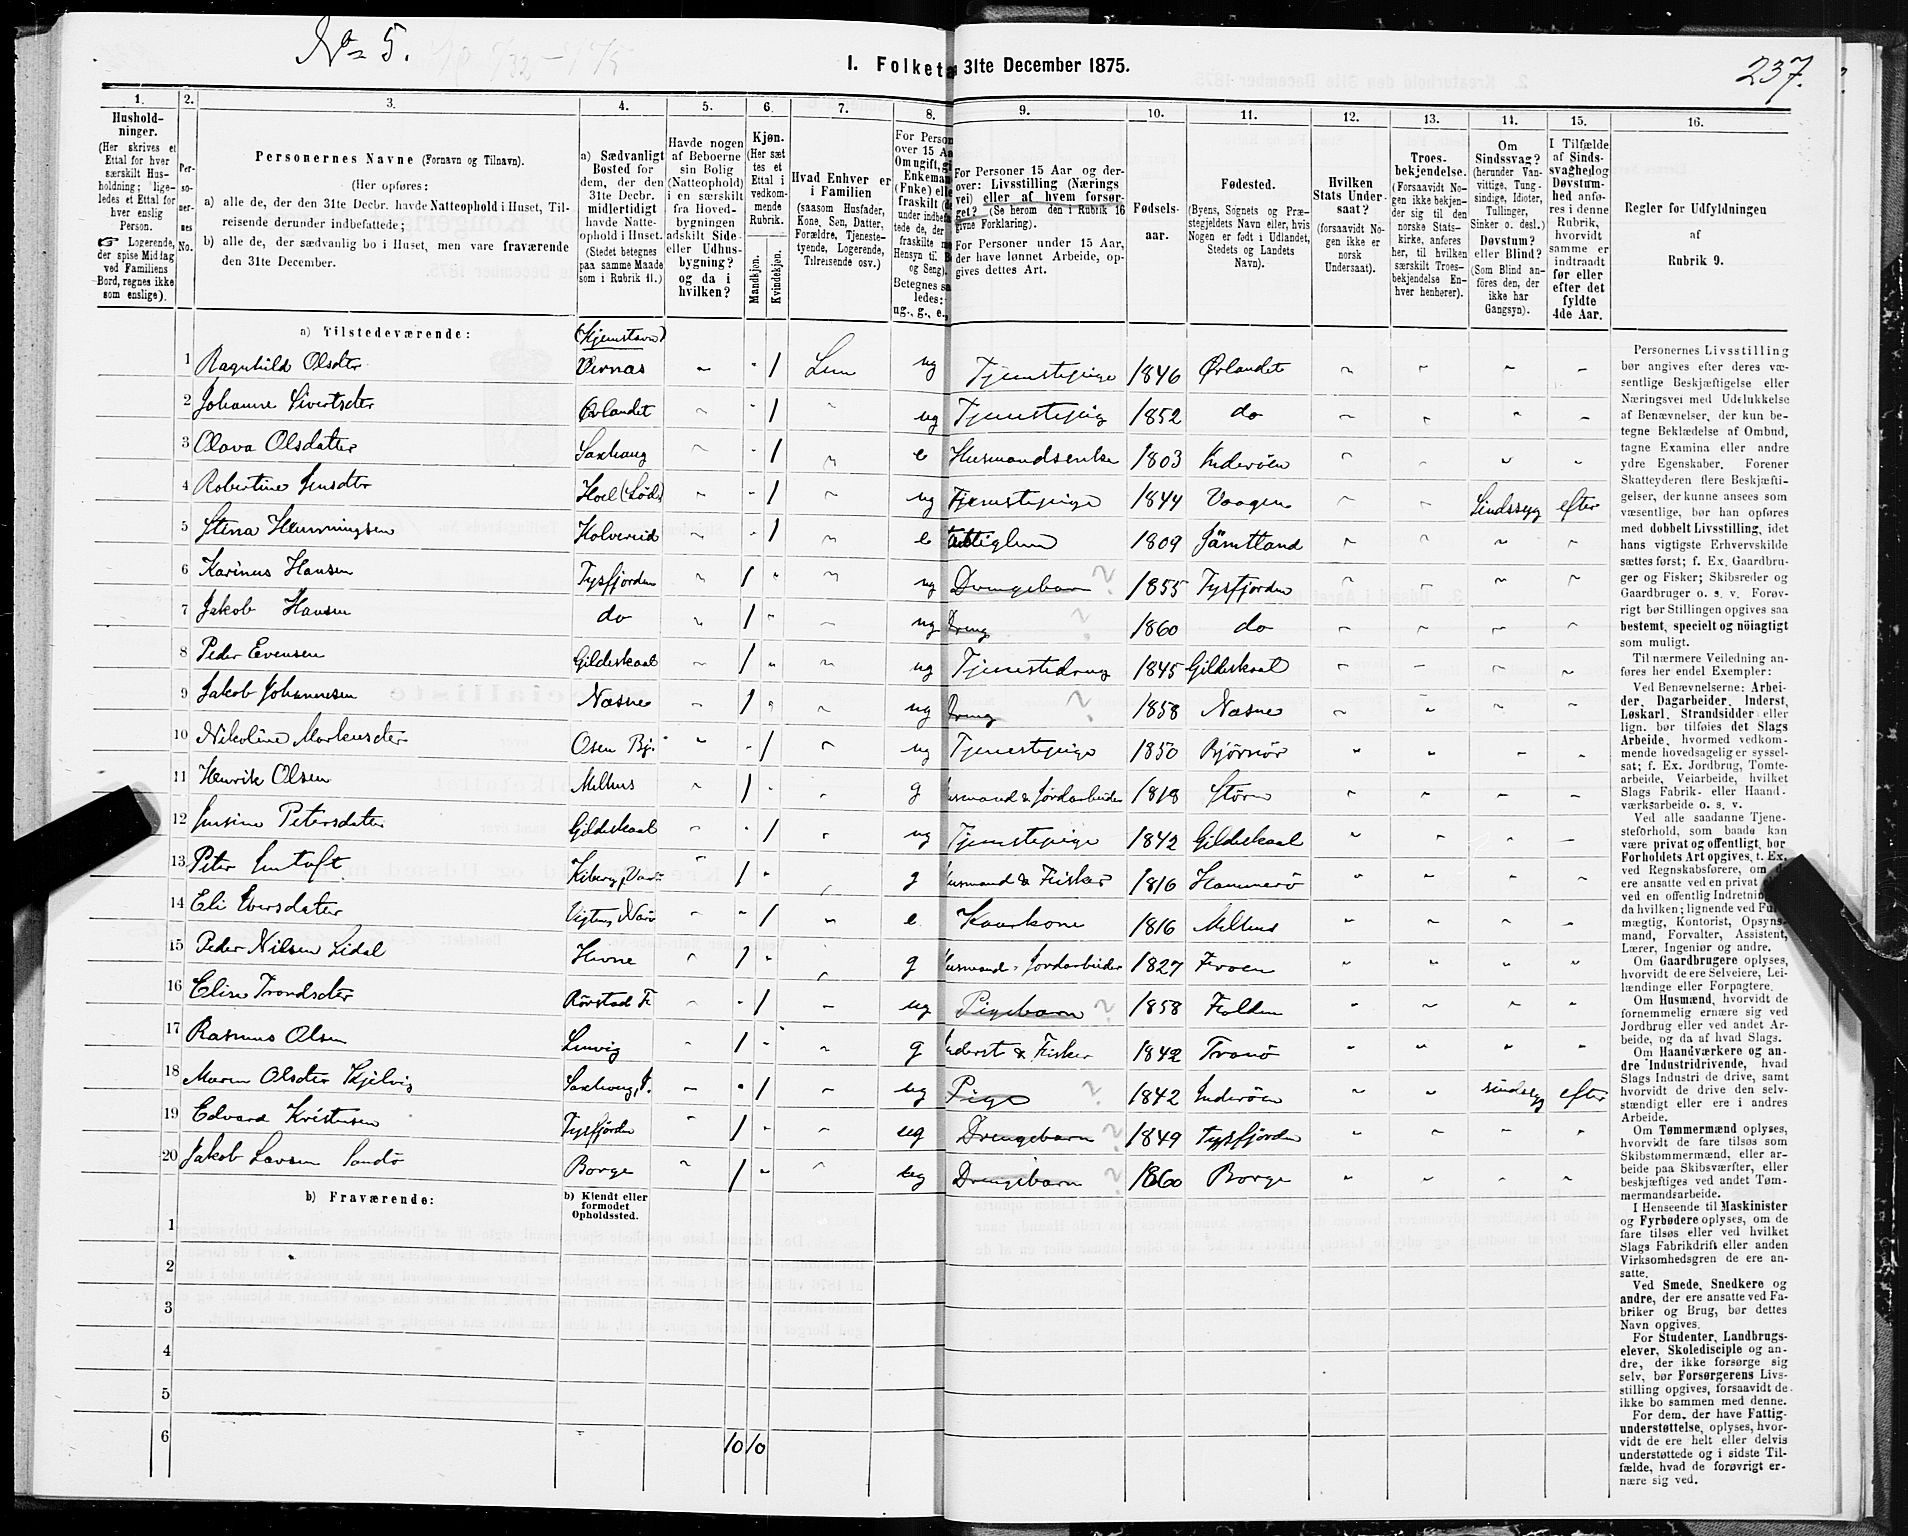 No 5.
I. Folket 31te December 1875.
237.
1. 2. 3. 4. 5. 6. 7. 8. 9. 10. 11. 12. 13. 14. 15. 16.
Hushold-
ninger.
(Her skrives et
Ettal for hver
særskilt Hus-
holdning; lige-
ledes et Ettal for
hver enslig
Person.
☞ Logerende,
der spise Middag
ved Familiens
Bord, regnes ikke
som enslige).
Per-
so-
ner-
nes
No.
Personernes Navne (Fornavn og Tilnavn).
(Her opføres:
a) alle de, der den 31te Decbr. havde Natteophold i Huset, Til-
reisende derunder indbefattede;
b) alle de, der sædvanlig bo i Huset, men vare fraværende
den 31te December.
a) Sædvanligt
Bosted for
dem, der den
31te Decbr.
midlertidigt
havde Natte-
ophold i Huset.
(Stedet betegnes
paa samme Maade
som i Rubrik 11.)
Havde nogen
af Beboerne
sin Bolig
(Natteophold)
i en særskilt
fra Hoved-
bygningen
adskilt Side-
eller Udhus-
bygning?
og da i
hvilken?
Kjøn.
(Her sæt-
tes et
Ettal i
vedkom-
mende
Rubrik.
Mandkjøn.
Kvindekjøn.
Hvad Enhver er
i Familien
(saasom Husfader,
Kone, Søn, Datter,
Forældre, Tjeneste-
tyende, Logerende,
Tilreisende osv.)
For Person
over 15 Aa
Om ugift, gi
Enkeman
(Fnke) elle
fraskilt (de
under indbefa
tede de, der
fraskilte m
Hensyn til B
og Seng).
Betegnes sa
ledes:
ug., g., e.,
For Personer 15 Aar og der-
over: Livsstilling (Nærings
vei) eller af hvem forsør-
get? (Se herom den i Rubrik 16
givne Forklaring).
For Personer under 15 Aar,
der have lønnet Arbeide, op-
gives dettes Art.
Fødsels-
aar.
Fødested.
(Byens, Sognets og Præ-
stegjeldets Navn eller, hvis
Nogen er født i Udlandet,
Stedets og Landets
Navn).
Hvilken
Stats Under-
saat?
(forsaavidt No-
gen ikke er
norsk
Undersaat).
Troes-
bekjendelse.
(Forsaavidt No-
gen ikke bekjen-
der sig til den
norske Stats-
kirke, anføres
her, til hvilken
særskilt Troes-
bekjendelse En-
hver henhører).
Om
Sindssvag?
(herunder Van-
vittige, Tung-
sindige, Idioter,
Tullinger,
Sinker o. desl.)
Døvstum?
eller Blind?
(Som Blind an-
føres den, der
ikke har
Gangsyn).
I Tilfælde
af Sinds-
svaghed og
Døvstum-
hed anfø-
res i denne
Rubrik,
hvorvidt
samme er
indtraadt
før eller
efter det
fyldte
4de Aar.
Regler for Udfyldningen
af
Rubrik 9.
a) Tilstedeværende: (Hjemstavn)
1 Ragnhild Olsdtr Vernas Lem ug Tjenstepige 1846 Ørlandet
2 Johanne Sivertsdter Ørlandet ug Tjenstepig 1852 do
3 Olava Olsdatter Saxhaug e Husmandsenke 1803 Inderöen
4 Robertine Jensdtr Hoel ug Tjenstepige 1844 Vaagen Sindssyg efter
5 Stena Henningsen Kolvereid e 1809 Jämtland
6 Karinus Hansen Tysfjorden ug Drengebarn ? 1855 Tysfjorden
7 Jakob Hansen do ug Dreng ? 1860 do
8 Peder Evensen Gildeskaal ug Tjenstedreng 1845 Gildeskaal
9 Jakob Johannesen Næsne ug Dreng ? 1858 Næsne
10 Nikoline Markusdter Osen Bj. ug Tjenstepige 1850 Bjørnör
11 Henrik Olsen Melhus g usmand & Jordarbeider 1818 Støren
12 Jensine Petersdatter Gildeskaal ug Tjenstepige 1842 Gildeskaal
13 Peter Jentoft Kiberg, Var g usmand & Fisker 1816 Hammerö
14 Eli Iversdatter Vigten, Närö e Kaarkone 1816 Melhus
15 Peder Nilsen Lidal Hevne g usmand, Jordarbeider 1827 Froen
16 Elise Trondsdter Rørstad F. ug Pigebarn ? 1858 Folden
17 Rasmus Olsen Lenvig g nderst & Fisker 1842 Tranö
18 Maren Olsdter Hjelvig Saxhoug, I. ug Pige ? 1842 Inderöen sindssyg efter
19 Edvard Kristensen Tysfjörden ug Drengebarn ? 1849 Tysfjörden
20 Jakob Larsen Sandö Borge ug Drengebarn ? 1860 Borge
b) Fraværende:
b) Kjendt eller
formodet
Opholdssted.
1
2
3
4
5
6
10 10
Personernes Livsstilling
bør angives efter deres væ-
sentlige Beskjæftigelse eller
Næringsvei med Udelukkelse
af Benævnelser, der kun be-
tegne Beklædelse af Ombud,
tagne Examina eller andre
ydre Egenskaber. Forener
Skatteyderen flere Beskjæfti-
gelser, der kunne ansees som
væsentlige, bør han opføres
med dobbelt Livsstilling, idet
hans vigtigste Erhvervskilde
sættes først; f. Ex. Gaardbru-
ger og Fisker; Skibsreder og
Gaardbruger o. s. v. Forøv-
rigt bør Stillingen opgives saa
bestemt, specielt og nöiagtigt
som muligt.
Til nærmere Veiledning an-
føres her endel Exempler:
Ved Benævnelserne: Arbei-
der, Dagarbeider, Inderst,
Løskarl, Strandsidder eller
lign. bør tilføies det Slags
Arbeide, hvormed vedkom-
mende hovedsagelig er syssel-
sat; f. Ex. Jordbrug, Tomte-
arbeide, Veiarbeide, hvilket
Slags Fabrik- eller Haand-
værksarbeide o. s. v.
Ved alle saadanne Tjene-
steforhold, som baade kan
være privat og offentligt, bør
Forholdets Art opgives, t. Ex.
ved Regnskabsførere, om de
ere ansatte ved en privat
ved en offentlig Indretning
da hvilken; lignende ved Fuld-
mægtig, Kontorist, Opsyns-
mand, Forvalter, Assistent,
Lærer, Ingeniør og andre.
Om Gaardbrugere oplyses,
hvorvidt de ere Selveiere, Lei-
lændinge eller Forpagtere.
Om Husmænd, hvorvidt de
fornemmelig ernære sig ved
Jordbrug eller ved andet Ar-
beide, og da af hvad Slags.
Om Haandværkere og an-
dre Industridrivende, hvad
Slags Industri de drive, samt
hvorvidt de drive den selv-
stændigt eller ere i andres
Arbeide.
Om Tømmermænd oplyses,
hvorvidt de fare tilsøs som
Skibstømmermænd, eller ar-
beide paa Skibsværfter, eller
beskjæftiges ved andet Tøm-
mermandsarbeide.
I Henseende til Maskinister
og Fyrbødere oplyses, om de
fare tilsøs eller ved hvilket
Slags Fabrikdrift eller anden
Virksomhedsgren de ere an-
satte.
Ved Smede, Snedkere og
andre, der ere ansatte ved Fa-
briker og Brug, bør dettes
Navn opgives.
For Studenter, Landbrugs-
elever, Skoledisciple og an-
dre, der ikke forsørge sig
selv, bør Forsørgerens Livs-
stilling opgives, forsaavidt de
ikke bo sammen med denne.
For dem, der have Fattig-
understøttelse, oplyses, hvor-
vidt de ere helt eller delvis
understøttede og i sidste Til-
fælde, hvad de forøvrigt er-
nære sig ved.